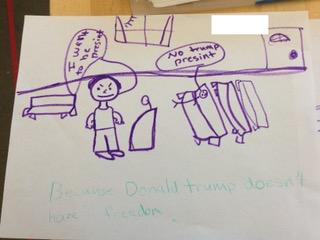 I went
to be
presint
No trump
presint
Because Donald trump doesn't
have freedom.